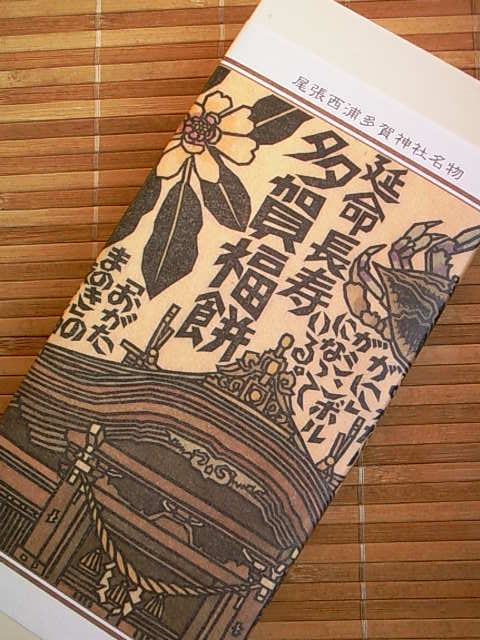 尾張西浦多賀神社名物
延命長寿
多賀福餅
おがた
まのきの
がシンボル
になって
いる。